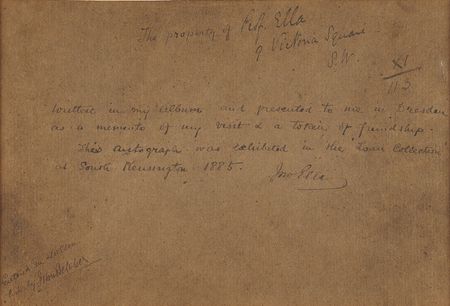 The property of Prof. Ella
9 Victoria Square
S.W.
XI
113
Written in my Album and presented to me in Dresden
as a memento of my visit & a token of friendship.
This autograph was exhibited in the Loan Collection
at South Kensington 1885.
Jno Ella